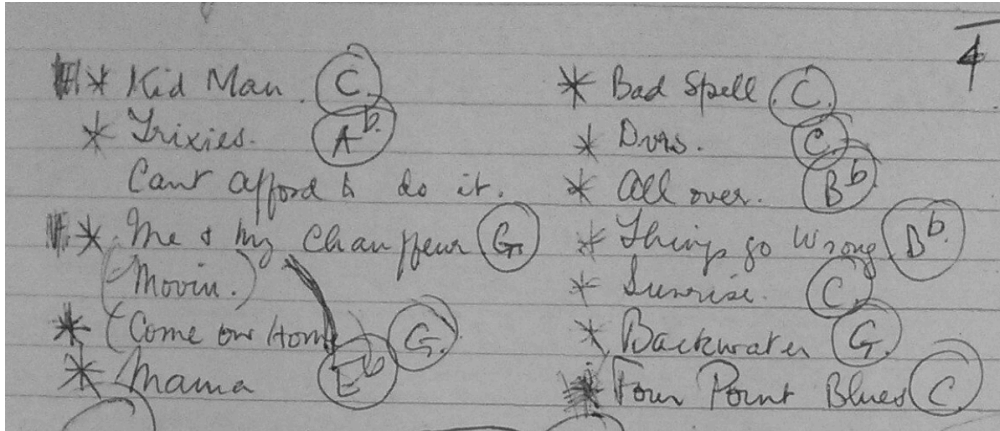 * Kid Man. C.
* Trixies. Ab.
Cant afford to do it.
* Me & My Chauffeur G.
(Movin.)
* (Come on Home G.
* Mama Eb
4
* Bad Spell. C.
* Duvs. C.
* All over. Bb
* Things go Wrong Bb.
* Sunrise. C.
* Backwater G.
* Four Point Blues C